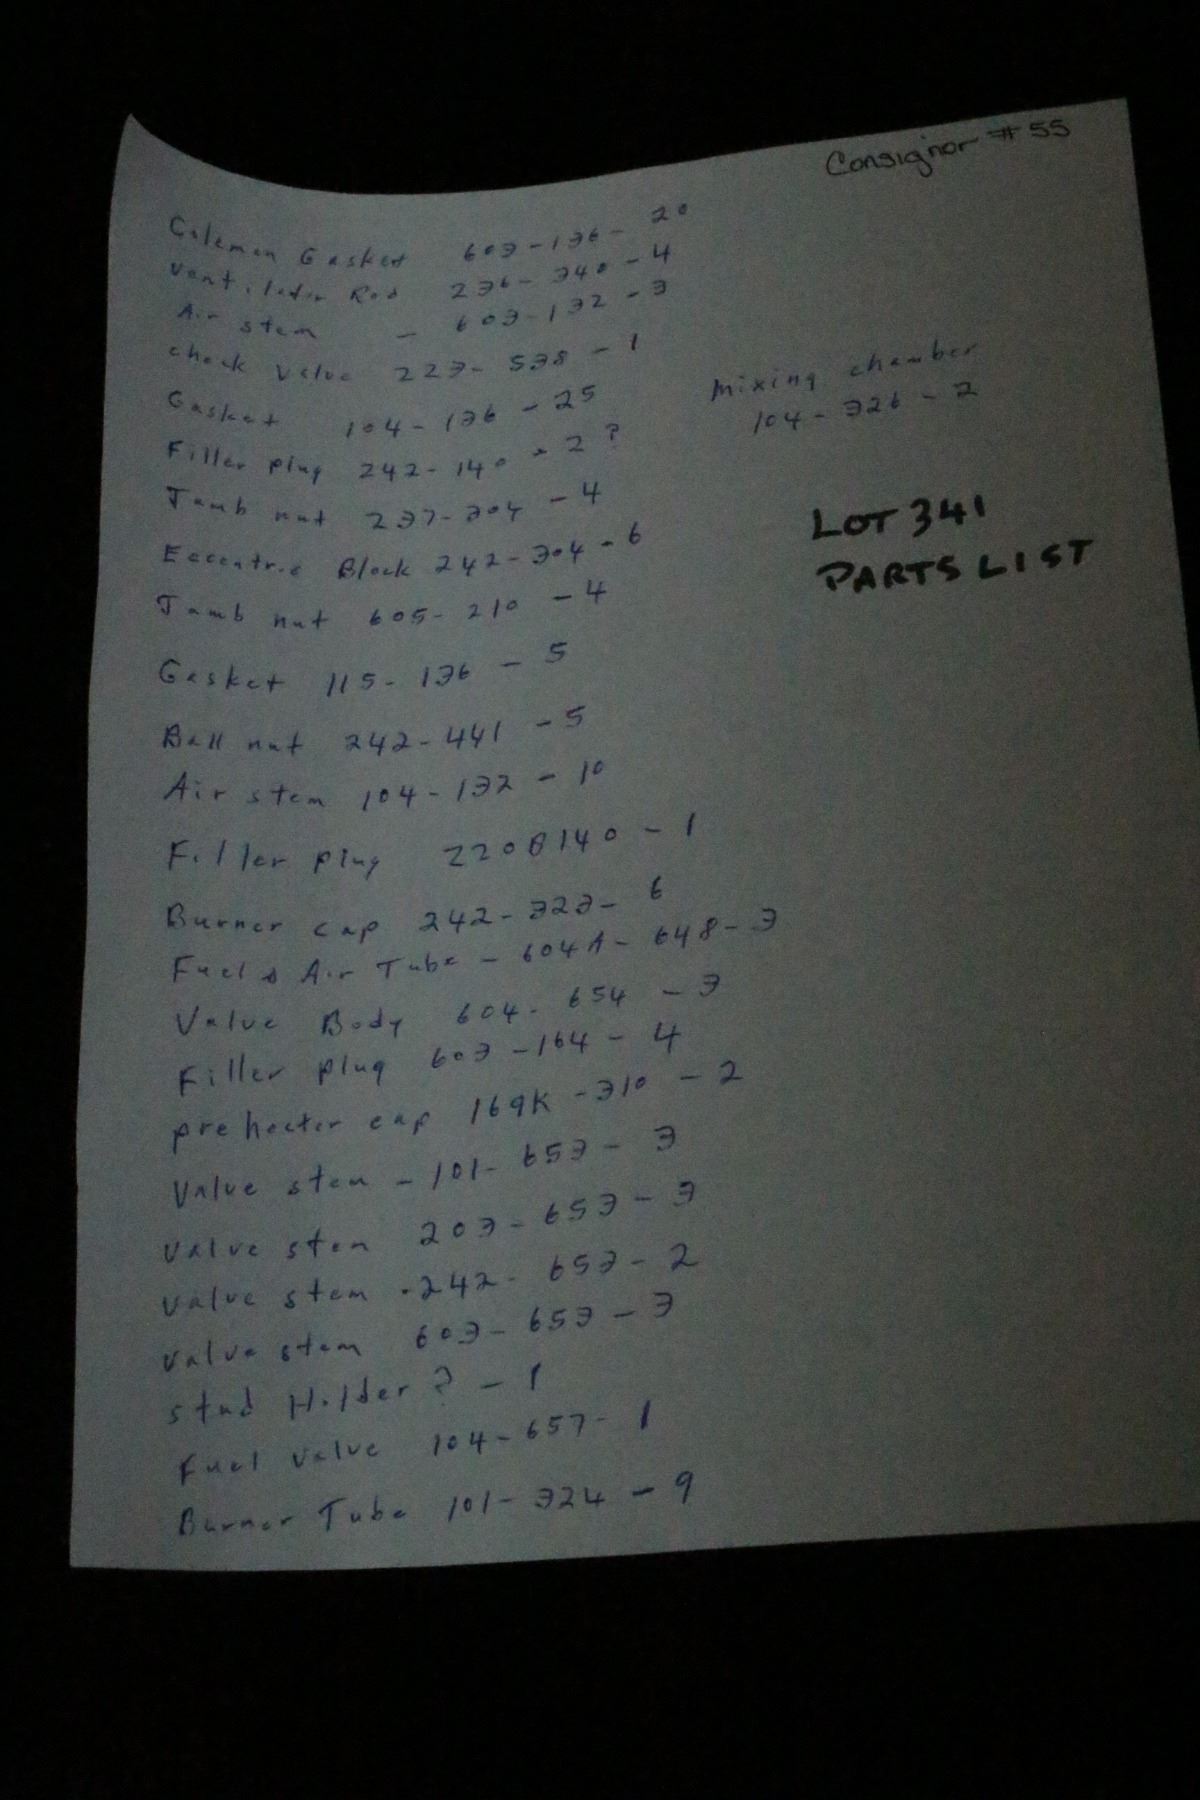 Consignor #55
Coleman Gasket 603-136-20
Ventilator Rod 236-340-4
Air stem - 603-132-3
check Valve 223-538-1
Gasket 104-136-25
Filler plug 242-140-2?
Jamb nut 237-304-4
Eccentric Block 242-304-6
Jamb nut 605-210-4
Gasket 115-136-5
Ball nut 242-441-5
Air stem 104-132-10
Filler plug 220B140-1
Burner cap 242-323-6
Fuel & Air Tube - 604A-648-3
Valve Body 604-654-3
Filler plug 603-164-4
preheater cap 169K-310-2
Valve stem - 101-653-3
Valve stem 203-653-3
Valve stem - 242-653-2
Valve stem 603-653-3
stud Holder? - 1
Fuel Valve 104-657-1
Burner Tube 101-324-9
Mixing chamber
104-326-2
LOT 341
PARTS LIST